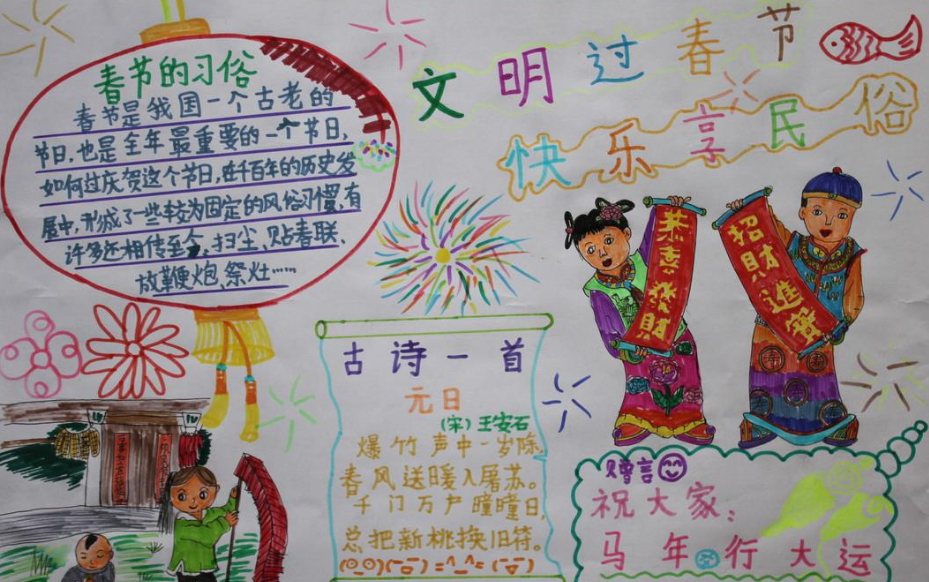 春节的习俗
春节是我国一个古老的
节日,也是全年最重要的一个节日,
如何过庆贺这个节日,在千百年的历史发
展中,形成了一些较为固定的风俗习惯,有
许多还相传至今,扫尘、贴春联、
放鞭炮、祭灶……
文明过春节
快乐享民俗
恭喜發財
招財進寶
古诗一首
元日
(宋)王安石
爆竹声中一岁除,
春风送暖入屠苏。
千门万户曈曈日,
总把新桃换旧符。
赠言
祝大家:
马年行大运